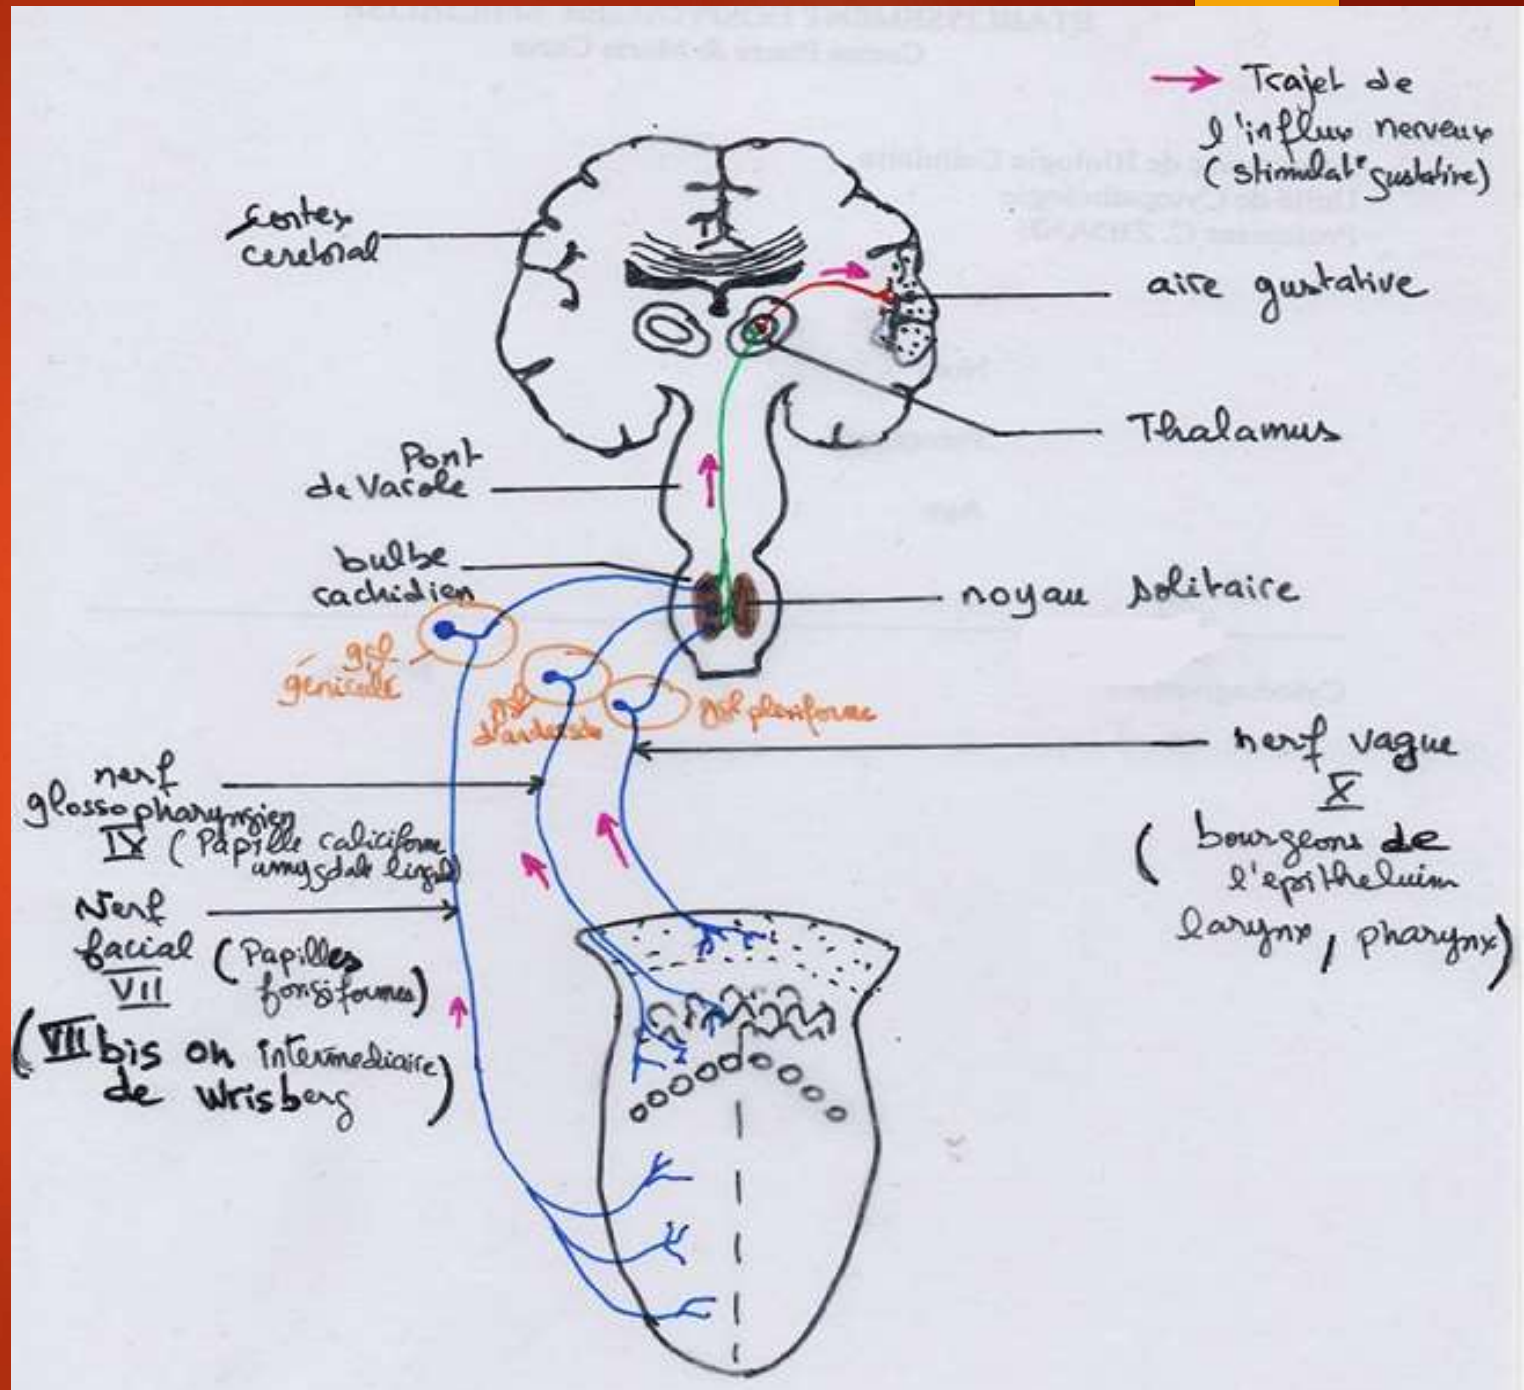 Trajet de
l'influx nerveux
(stimulat° gustative)
cortex
cerebral
aire gustative
Thalamus
Pont
de Varole
bulbe
rachidien
noyau solitaire
ggl
géniculé
ggl
ggl plexiforme
nerf vague
X
(bourgeons de
l'epitheluim
larynx, pharynx)
nerf
glossopharyngien
IX (Papille caliciforme
amygdale linguale)
Nerf
facial (Papilles
VII fongiformes)
(VII bis ou intermediaire
de Wrisberg)